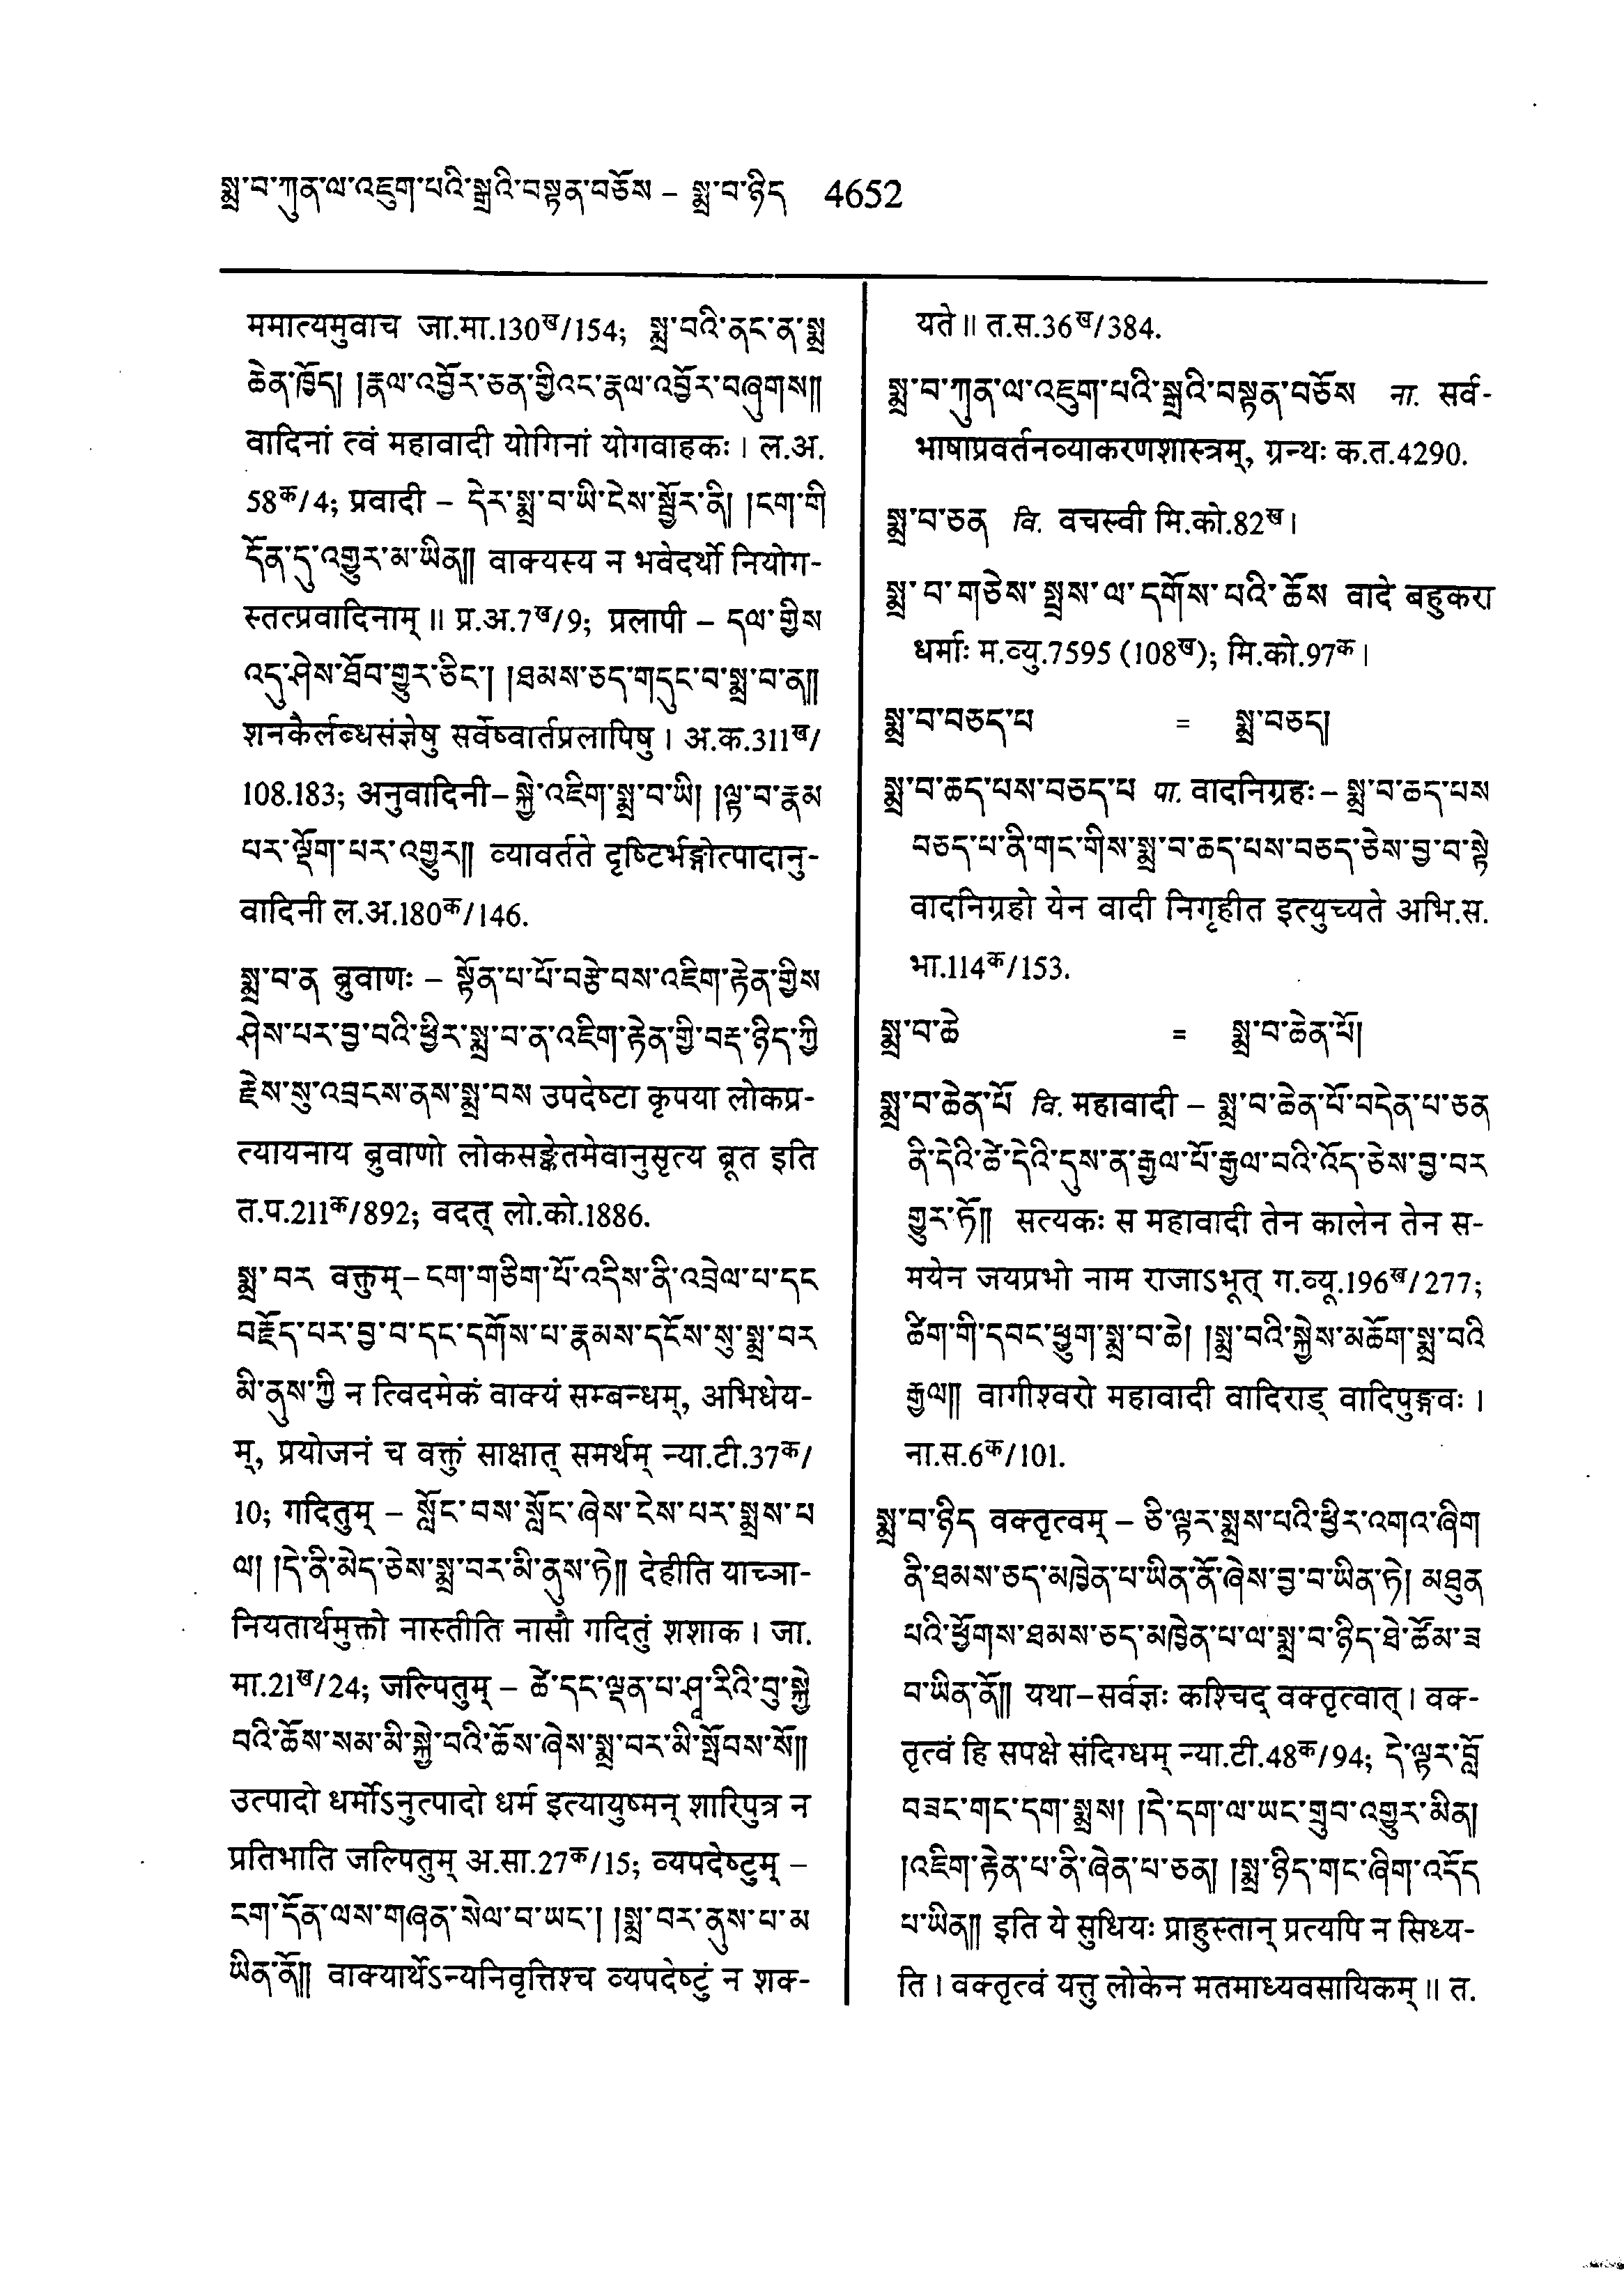 སྨྲ་བ་ཀུན་ལ་འཇུག་པའི་སྒྲའི་བསྟན་བཅོས – སྨྲ་བ་ཉིད 4652
ममात्यमुवाच जा.मा.130ख/154; སྨྲ་བའི་ནང་ན་སྨྲ
ཆེན་ཁྱོད། །རྣལ་འབྱོར་ཅན་གྱིའང་རྣལ་འབྱོར་བཞུགས།།
वादिनां त्वं महावादी योगिनां योगवाहकः । ल.अ.
58क/4; प्रवादी – དེར་སྨྲ་བ་ཡི་ངེས་སྦྱོར་ནི། །ངག་གི
དོན་དུ་འགྱུར་མ་ཡིན།། वाक्यस्य न भवेदर्थो नियोग-
स्तत्प्रवादिनाम् ॥ प्र.अ.7ख/9; प्रलापी – དལ་གྱིས
འདུ་ཤེས་ཐོབ་གྱུར་ཅིང་། །ཐམས་ཅད་གདུང་བ་སྨྲ་བ་ན།།
शनकैर्लब्धसंज्ञेषु सर्वेष्वार्तप्रलापिषु । अ.क.311ख/
108.183; अनुवादिनी – སྐྱེ་འཇིག་སྨྲ་བ་ཡི། །ལྟ་བ་རྣམ
པར་ལྡོག་པར་འགྱུར།། व्यावर्तते दृष्टिर्भङ्गोत्पादानु-
वादिनी ल.अ.180क/146.
སྨྲ་བ་ན ब्रुवाणः – སྟོན་པ་པོ་བརྩེ་བས་འཇིག་རྟེན་གྱིས
ཤེས་པར་བྱ་བའི་ཕྱིར་སྨྲ་བ་ན་འཇིག་རྟེན་གྱི་བརྡ་ཉིད་ཀྱི
རྗེས་སུ་འབྲངས་ནས་སྨྲ་བས उपदेष्टा कृपया लोकप्र-
त्यायनाय ब्रुवाणो लोकसङ्केतमेवानुसृत्य ब्रूत इति
त.प.211क/892; वदत् लो.को.1886.
སྨྲ་བར वक्तुम् – ངག་གཅིག་པོ་འདིས་ནི་འབྲེལ་པ་དང
བརྗོད་པར་བྱ་བ་དང་དགོས་པ་རྣམས་དངོས་སུ་སྨྲ་བར
མི་ནུས་ཀྱི न त्विदमेकं वाक्यं सम्बन्धम्, अभिधेय-
म्, प्रयोजनं च वक्तुं साक्षात् समर्थम् न्या.टी.37क/
10; गदितुम् – སློང་བས་སློང་ཞེས་ངེས་པར་སྨྲས་པ
ལ། །དེ་ནི་མེད་ཅེས་སྨྲ་བར་མི་ནུས་ཏེ།། देहीति याच्ञा-
नियतार्थमुक्तो नास्तीति नासौ गदितुं शशाक । जा.
मा.21ख/24; जल्पितुम् – ཚེ་དང་ལྡན་པ་ཤཱ་རིའི་བུ་སྐྱེ
བའི་ཆོས་སམ་མི་སྐྱེ་བའི་ཆོས་ཞེས་སྨྲ་བར་མི་སྤོབས་སོ།།
उत्पादो धर्मोऽनुत्पादो धर्म इत्यायुष्मन् शारिपुत्र न
प्रतिभाति जल्पितुम् अ.सा.27क/15; व्यपदेष्टुम् –
ངག་དོན་ལས་གཞན་སེལ་བ་ཡང་། །སྨྲ་བར་ནུས་པ་མ
ཡིན་ནོ།། वाक्यार्थेऽन्यनिवृत्तिश्च व्यपदेष्टुं न शक-
यते ॥ त.स.36ख/384.
སྨྲ་བ་ཀུན་ལ་འཇུག་པའི་སྒྲའི་བསྟན་བཅོས ना. सर्व-
भाषाप्रवर्तनव्याकरणशास्त्रम्, ग्रन्थः क.त.4290.
སྨྲ་བ་ཅན वि. वचस्वी मि.को.82ख ।
སྨྲ་བ་གཅེས་སྤྲས་ལ་དགོས་པའི་ཆོས वादे बहुकरा
धर्माः म.व्यु.7595 (108ख); मि.को.97क ।
སྨྲ་བ་བཅད་པ = སྨྲ་བཅད།
སྨྲ་བ་ཆད་པས་བཅད་པ पा. वादनिग्रहः – སྨྲ་བ་ཆད་པས
བཅད་པ་ནི་གང་གིས་སྨྲ་བ་ཆད་པས་བཅད་ཅེས་བྱ་བ་སྟེ
वादनिग्रहो येन वादी निगृहीत इत्युच्यते अभि.स.
भा.114क/153.
སྨྲ་བ་ཆེ = སྨྲ་བ་ཆེན་པོ།
སྨྲ་བ་ཆེན་པོ वि. महावादी – སྨྲ་བ་ཆེན་པོ་བདེན་པ་ཅན
ནི་དེའི་ཚེ་དེའི་དུས་ན་རྒྱལ་པོ་རྒྱལ་བའི་འོད་ཅེས་བྱ་བར
གྱུར་ཏོ།། सत्यकः स महावादी तेन कालेन तेन स-
मयेन जयप्रभो नाम राजाऽभूत् ग.व्यू.196ख/277;
ཚིག་གི་དབང་ཕྱུག་སྨྲ་བ་ཆེ། །སྨྲ་བའི་སྐྱེས་མཆོག་སྨྲ་བའི
རྒྱལ།། वागीश्वरो महावादी वादिराड् वादिपुङ्गवः ।
ना.स.6क/101.
སྨྲ་བ་ཉིད वक्तृत्वम् – ཅི་ལྟར་སྨྲས་པའི་ཕྱིར་འགའ་ཞིག
ནི་ཐམས་ཅད་མཁྱེན་པ་ཡིན་ནོ་ཞེས་བྱ་བ་ཡིན་ཏེ། མཐུན
པའི་ཕྱོགས་ཐམས་ཅད་མཁྱེན་པ་ལ་སྨྲ་བ་ཉིད་ཐེ་ཚོམ་ཟ
བ་ཡིན་ནོ།། यथा – सर्वज्ञः कश्चिद् वक्तृत्वात् । वक-
तृत्वं हि सपक्षे संदिग्धम् न्या.टी.48क/94; དེ་ལྟར་བློ
བཟང་གང་དག་སྨྲས། །དེ་དག་ལ་ཡང་གྲུབ་འགྱུར་མིན།
།འཇིག་རྟེན་པ་ནི་ཞེན་པ་ཅན། །སྨྲ་ཉིད་གང་ཞིག་འདོད
པ་ཡིན།། इति ये सुधियः प्राहुस्तान् प्रत्यपि न सिध्य-
ति । वक्तृत्वं यत्तु लोकेन मतमाध्यवसायिकम् ॥ त.